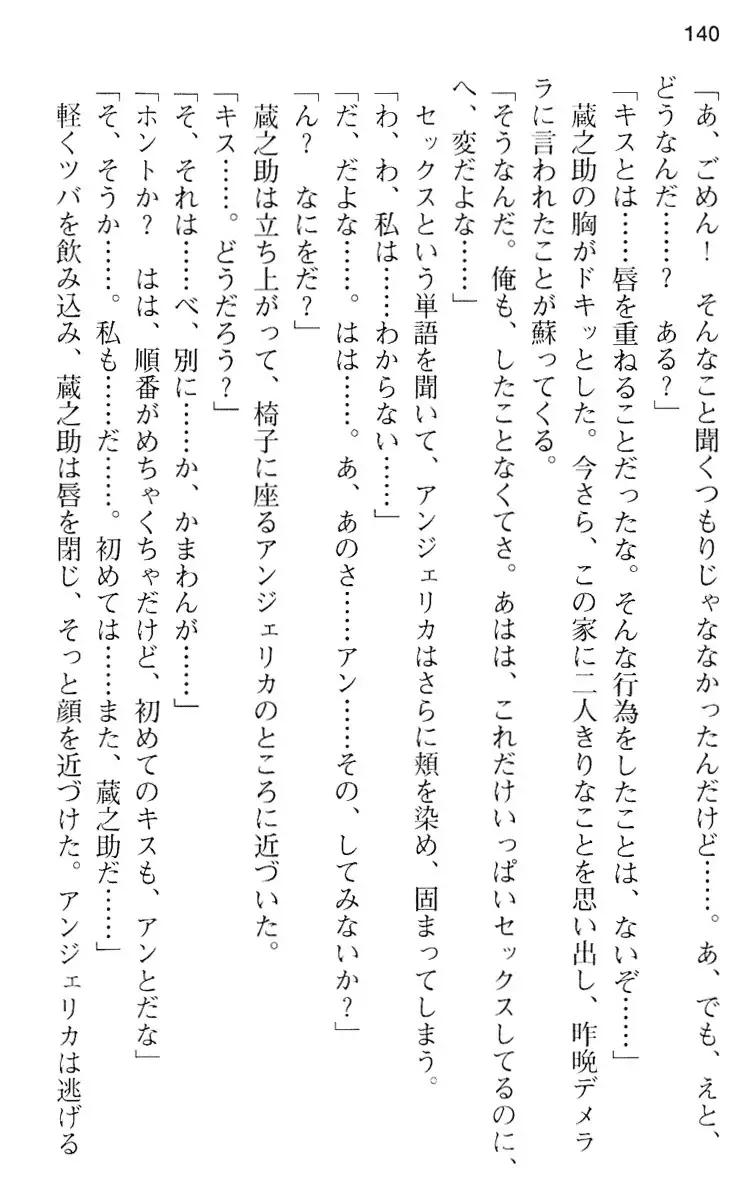 140
「あ、ごめん！　そんなこと聞くつもりじゃななかったんだけど……。あ、でも、えと、
どうなんだ……？　ある？」
「キスとは……唇を重ねることだったな。そんな行為をしたことは、ないぞ……」
　蔵之助の胸がドキッとした。今さら、この家に二人きりなことを思い出し、昨晩デメラ
ラに言われたことが蘇ってくる。
「そうなんだ。俺も、したことなくてさ。あはは、これだけいっぱいセックスしてるのに、
へ、変だよな……」
　セックスという単語を聞いて、アンジェリカはさらに頬を染め、固まってしまう。
「わ、わ、私は……わからない……」
「だ、だよな……。はは……。あ、あのさ……アン……その、してみないか？」
「ん？　なにをだ？」
　蔵之助は立ち上がって、椅子に座るアンジェリカのところに近づいた。
「キス……。どうだろう？」
「そ、それは……べ、別に……か、かまわんが……」
「ホントか？　はは、順番がめちゃくちゃだけど、初めてのキスも、アンとだな」
「そ、そうか……。私も……だ……。初めては……また、蔵之助だ……」
　軽くツバを飲み込み、蔵之助は唇を閉じ、そっと顔を近づけた。アンジェリカは逃げる